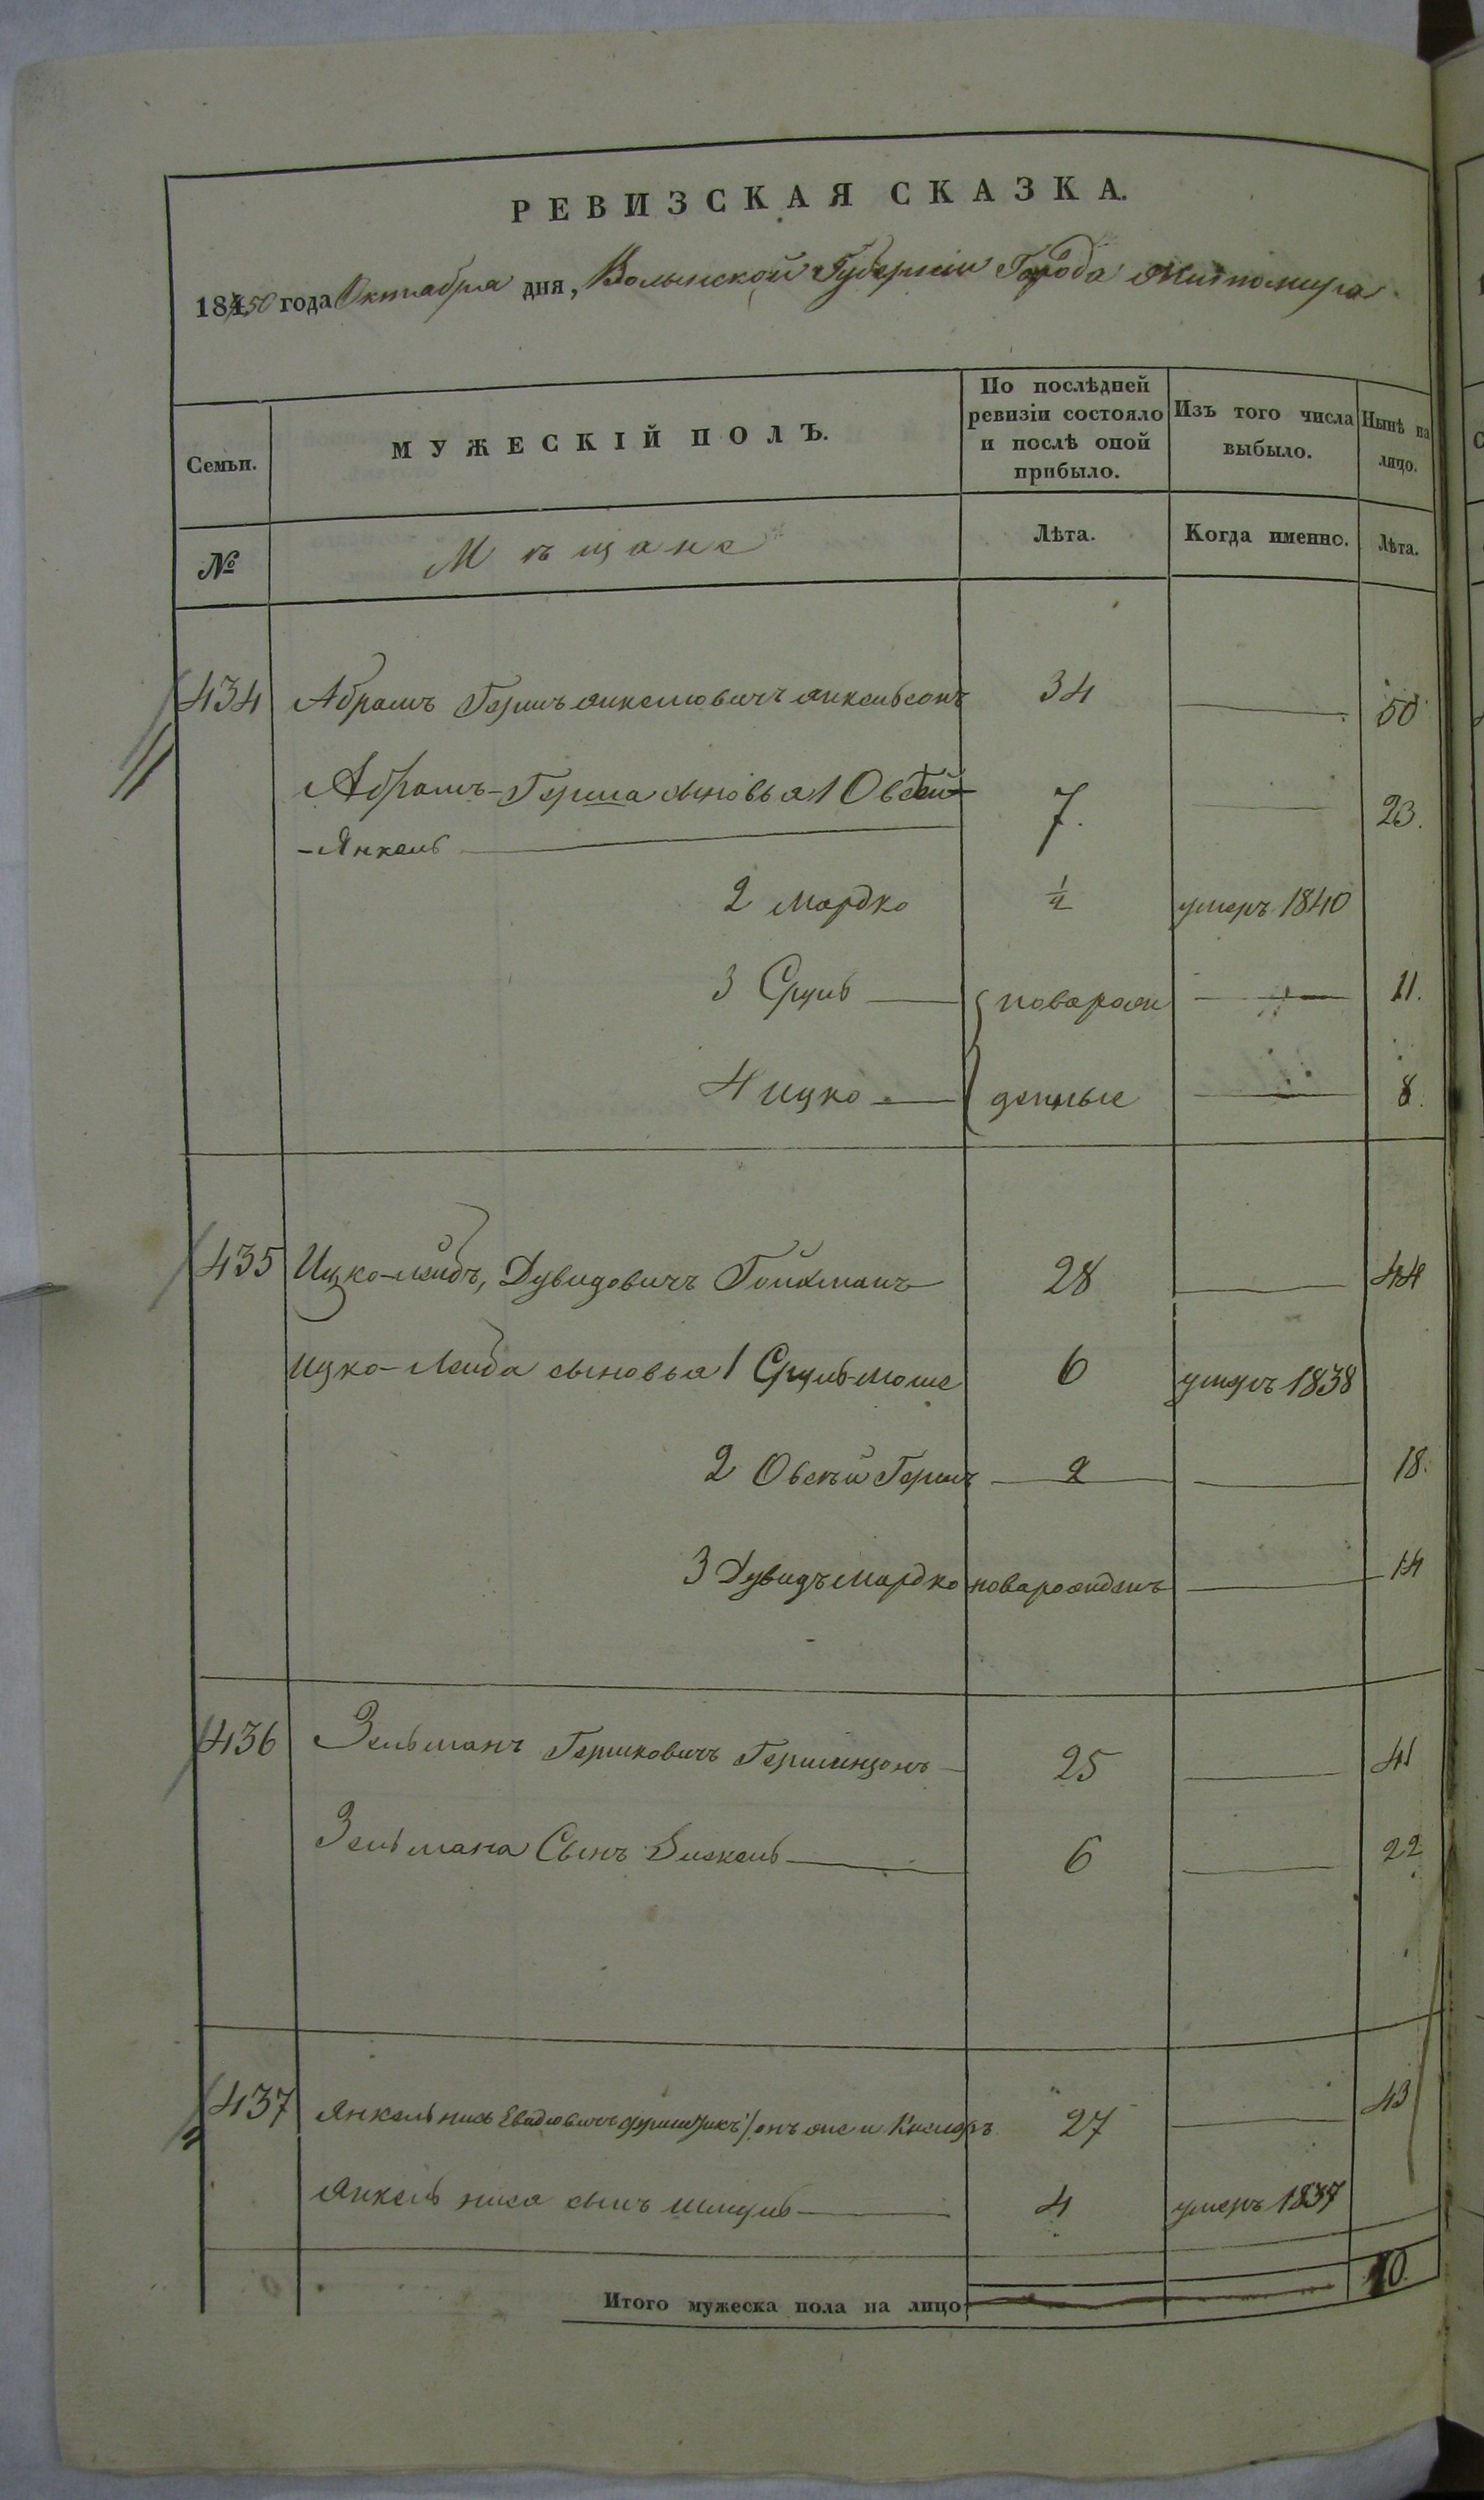 РЕВИЗСКАЯ СКАЗКА.
1850 года Октября дня, Волынской Губерніи Города Житомира
Семьи. МУЖЕСКІЙ ПОЛЪ. По послѣдней ревизіи состояло и послѣ оной прибыло. Изъ того числа выбыло. Нынѣ на лицо.
№ Мѣщане Лѣта. Когда именно. Лѣта.
434 Абрамъ Гершъ Янкелювичъ Янкельсонъ 34 50
Абрамъ-Герша сыновья 1 Овсей
-Янкель 7. 23.
2 Мордко ¼ умеръ 1840
3 Сруль новарож 11.
4 Ицко денные 8.
435 Ицко-Лейбъ, Дувидовичъ Гойхманъ 28 44
Ицко-Лейба сыновья 1 Сруль-Моше 6 умеръ 1838
2 Овсѣй Гершъ 2 18.
3 Дувидъ Мордко новарожденъ 14
436 Зельманъ Гершковичъ Гершензонъ 25 41
Зельмана Сынъ Хаскель 6 22
437 Янкель Нись онъ же и 27 43
Янкель Ниса сынъ Шмуль 4 умеръ 1837
Итого мужеска пола на лицо 10.